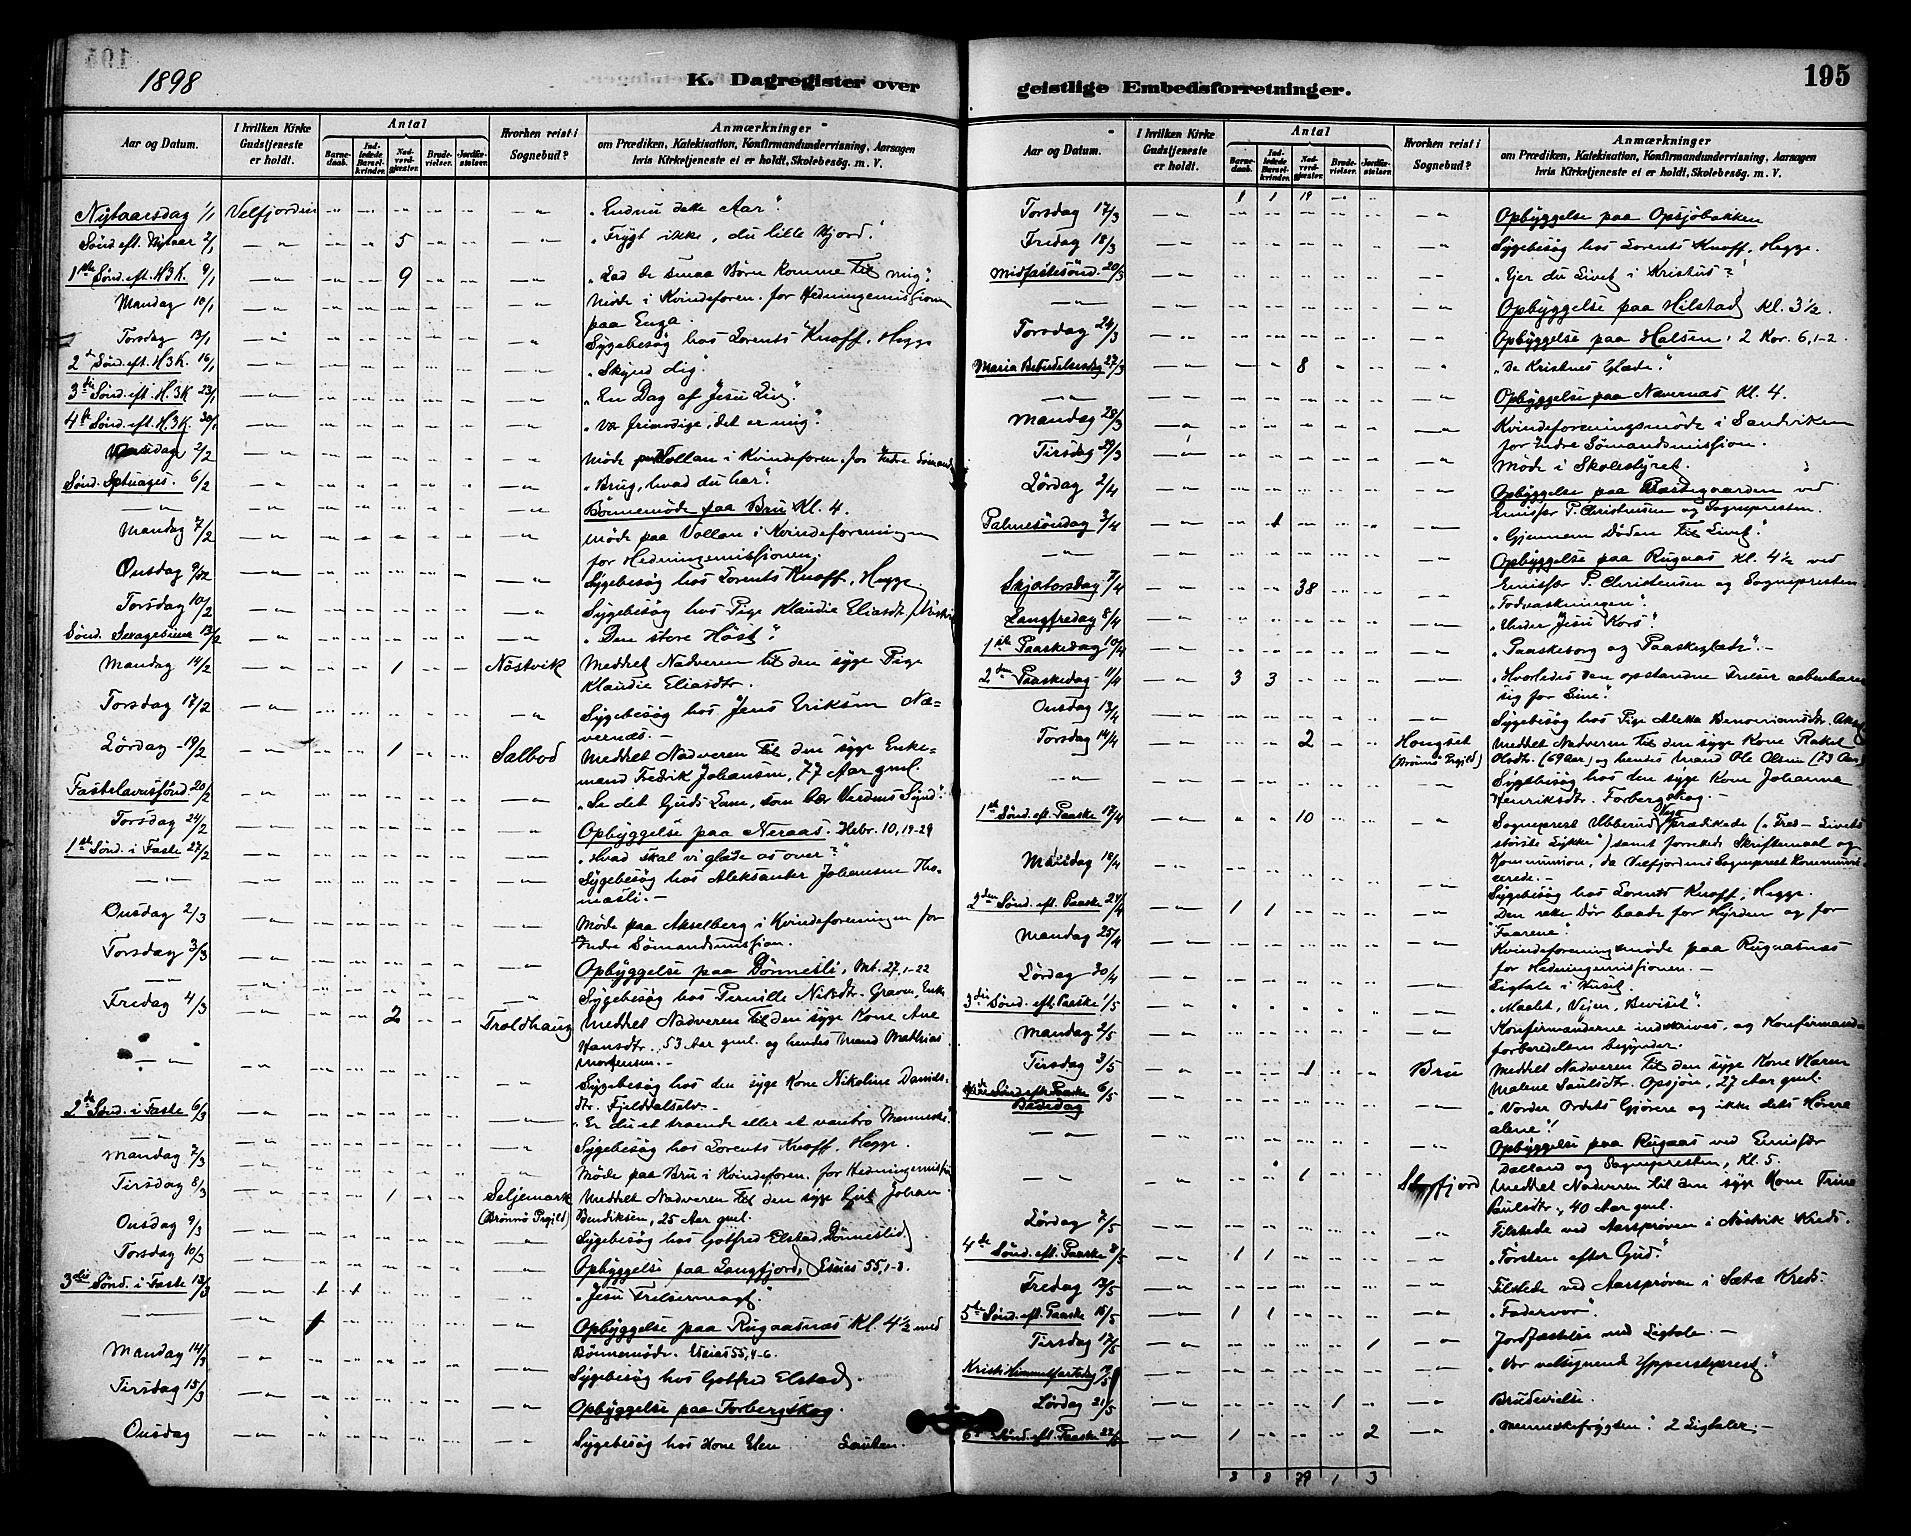 1898
K. Dagregister over
Aar og Datum.
I hvilken Kirke Gudstjeneste er holdt.
Antal
Barnedaab.
Indledede Barselkvinder.
Nadverdgjester.
Brudevielser.
Jordfæstelser.
Hvorhen reist i Sognebud?
Anmærkninger
om Prædiken, Katekisation, Konfirmandundervisning, Aarsagen
hvis Kirketjeneste ei er holdt, Skolebesøg. m. V.
Nytaarsdag 1/1 Velfjorden "Endnu dette Aar".
Sønd. eft. Nytaar 2/1 5 "Frygt ikke, du lille Hjord."
1ste Sønd. eft. H3K. 9/1 9 "Lad de smaa Børn komme til mig".
Mandag 10/1 Møde i Kvindeforen. for Hedningemissionen
paa Enga.
Torsdag 13/1 Sygebesøg hos Lorents Knoff, Hegge
2de Sønd. eft. H3K. 16/1 "Skynd dig".
3die Sønd. eft. H.3K 23/1 "En Dag af Jesu Liv".
4de Sønd. eft. H.3K. 30/1 "Vær frimodige, det er mig".
2/2 Møde Vollan i Kvindeforen. for Indre Sømand
Sønd. Sptuages. 6/2 "Brug, hvad du har".
Bønnemøde paa Bru Kl. 4.
Mandag 7/2 Møde paa Vollan i Kvindeforeningen
for Hedningemissionen.
Onsdag 9/2 Sygebesøg hos Lorents Knoff, Hegge.
Torsdag 10/2 Sygebesøg hos Pige Klaudie Eliasdt.
Sønd. Sexagesima 13/2 "Den store Høst".
Mandag 14/2 1 Nøstvik Meddelt Nadveren til den syge Pige
Klaudie Eliasdtr.
Torsdag 17/2 Sygebesøg hos Jens Eriksen Næ-
vernes.-
Lørdag 19/2 1 Salbod Meddelt Nadveren til den syge Enke-
mand Fredrik Johansen, 77 Aar gml.
Fastelavnssønd. 20/2 "Se det Guds Lam, som bær Verdens Synd".
Torsdag 24/2 Opbyggelse paa Neraas. Hebr. 10, 19-29
1ste Sønd. i Faste 27/2 "Hvad skal vi glæde os over?"
Sygebesøg hos Aleksanter Johansen Tho-
masli.-
Onsdag 2/3 Møde paa Akselberg i Kvindeforeningen for
Indre Sømandsmission.
Torsdag 3/3 Opbyggelse paa Dønnesli, Mt. 27, 1-22
Sygebesøg hos Pernille Nilsdtr. Graven, Enke
Fredag 4/3 2 Troldhaug Meddelt Nadveren til den syge Kone Ane
Hansdtr., 53 Aar gml. og hendes Mand Mathias
Mortensen.-
Sygebesøg hos den syge Kone Nikoline Davids-
dtr. Fjelddalselv.-
2de Sønd. i Faste 6/3 "Er du et troende eller et vantro Menneske".
Sygebesøg hos Lorents Knoff, Hegge.
Mandag 7/3 Møde paa Bru i Kvindeforen. for Hedningemission
Tirsdag 8/3 1 Seljemark Meddelt Nadveren til den syge Gut Johan
(Brønnø Prgjld) Bendiksen, 25 Aar gml.
Onsdag 9/3 Sygebesøg hos Gotfred Elstad, Dønneslid
Torsdag 10/3 Opbyggelse paa Langfjord, Esaias 55, 1-3.
3die Sønd. i Faste 13/3 1 1 "Jesu Frelsermagt".
Opbyggelse paa Rugaasnæs Kl. 4½ med
Bønnemøde. Esaias 55, 4-6.
Mandag 14/3 Sygebesøg hos Gotfred Elstad.
Tirsdag 15/3 Opbyggelse paa Forbergskog.
Onsdag Sygebesøg hos Kone Elen
geistlige Embedsforretninger.
195
Aar og Datum.
I hvilken Kirke Gudstjeneste er holdt.
Antal
Barnedaab.
Indledede Barselkvinder.
Nadverdgjester.
Brudevielser.
Jordfæstelser.
Hvorhen reist i Sognebud?
Anmærkninger
om Prædiken, Katekisation, Konfirmandundervisning, Aarsagen
hvis Kirketjeneste ei er holdt, Skolebesøg. m. V.
1 1 19
Torsdag 17/3 Opbyggelse paa Opsjøbakken
Fredag 18/3 Sygebesøg hos Lorents Knoff, Hegge.
Midfastesønd. 20/3 "Ejer du Livet i Kristus?"
Opbyggelse paa Hilstad Kl. 3½.
Torsdag 24/3 Opbyggelse paa Halsen, 2 Kor. 6, 1-2.
Maria Bebudelsesdag 27/3 8 "De Kristnes Glæde".
Opbyggelse paa Nævernæs Kl. 4.
Mandag 28/3 Kvindeforeningsmøde i Sandviken
for Indre Sømandsmission.
Tirsdag 29/3 Møde i Skolestyret.
Lørdag 2/4 Opbyggelse paa Præstegaarden ved
Emissær P. Christensen og Sognepresten.
Palmesøndag 3/4 1 "Gjennem Døden til Livet".
Opbyggelse paa Rugaas Kl. 4½ ved
Emissær P. Christensen og Sognepresten
Skjærtorsdag 7/4 38 "Fodvaskningen".
Langfredag 8/4 "Under Jesu Kors".
1ste Paaskedag 10/4 "Paaskesorg og Paaskeglæde".-
2den Paaskedag 11/4 3 3 "Hvorledes den opstandne Frelser aabenbarer
sig for sine".
Onsdag 13/4 Sygebesøg hos Pige Aletta
Torsdag 14/4 2 Hongset Meddelt Nadveren til den syge Kone Rakel
(Brønnø Prgjld) Olsdtr. (69 Aar) og hendes Mand Ole Olsen (73 Aar)
Sygebesøg hos den syge Kone Johanna
Henriksdtr. Forbergskog.-
1ste Sønd. eft. Paaske 17/4 10 Sogneprest prædikede ("Fred - Livets
største Lykke") samt forrettede Skriftemaal og
Kommunion, da Velfjordens Sogneprest kommuni-
cerede.-
Mandag 18/4 Sygebesøg hos Lorents Knoff, Hegge.
2den Sønd. eft. Paaske 24/4 1 1 "Den rette Dør baade for Hyrden og for
Faarene".
Mandag 25/4 Kvindeforeningsmøde paa Rugaasnæs
for Hedningemissionen.-
Lørdag 30/4 Ligtale i Huset.
3die Sønd. eft. Paaske 1/5 "Maalet, Vejen, Beviset".
Mandag 2/5 Konfirmanderne indskrives, og Konfirmand-
forberedelsen begynder.
Tirsdag 3/5 1 Bru Meddelt Nadveren til den syge Kone Karen
Malene Paulsdtr. Opsjøn, 27 Aar gml.
Bededag 6/5 "Vorder Ordets Gjørere og ikke dets Hørere
alene"!
Opbyggelse paa Rugaas ved Emissær
Dalland og Sognepresten, Kl. 5.
1 Storfjord Meddelt Nadveren til den syge Kone Trine
Paulsdtr., 40 Aar gml.
Lørdag 7/5 Tilstede ved Aarsprøven i Nøstvik Kreds.
4de Sønd. eft. Paaske 8/5 1 1 "Tørsten efter Gud."
Fredag 13/5 Tilstede ved Aarsprøven i Sætra Kreds.
5te Sønd. eft. Paaske 15/5 1 1 "Fadervor".
Tirsdag 17/5 1 Jordfæstelse med Ligtale.-
Kristi Himmelfartsdag 19/5 "Vor velsignende Ypperstepræst."
Lørdag 21/5 1 Brudevielse
6te Sønd. eft. Paaske 22/5 1 2 "Menneskefrygten". 2 Ligtaler.-
8 8 79 1 3